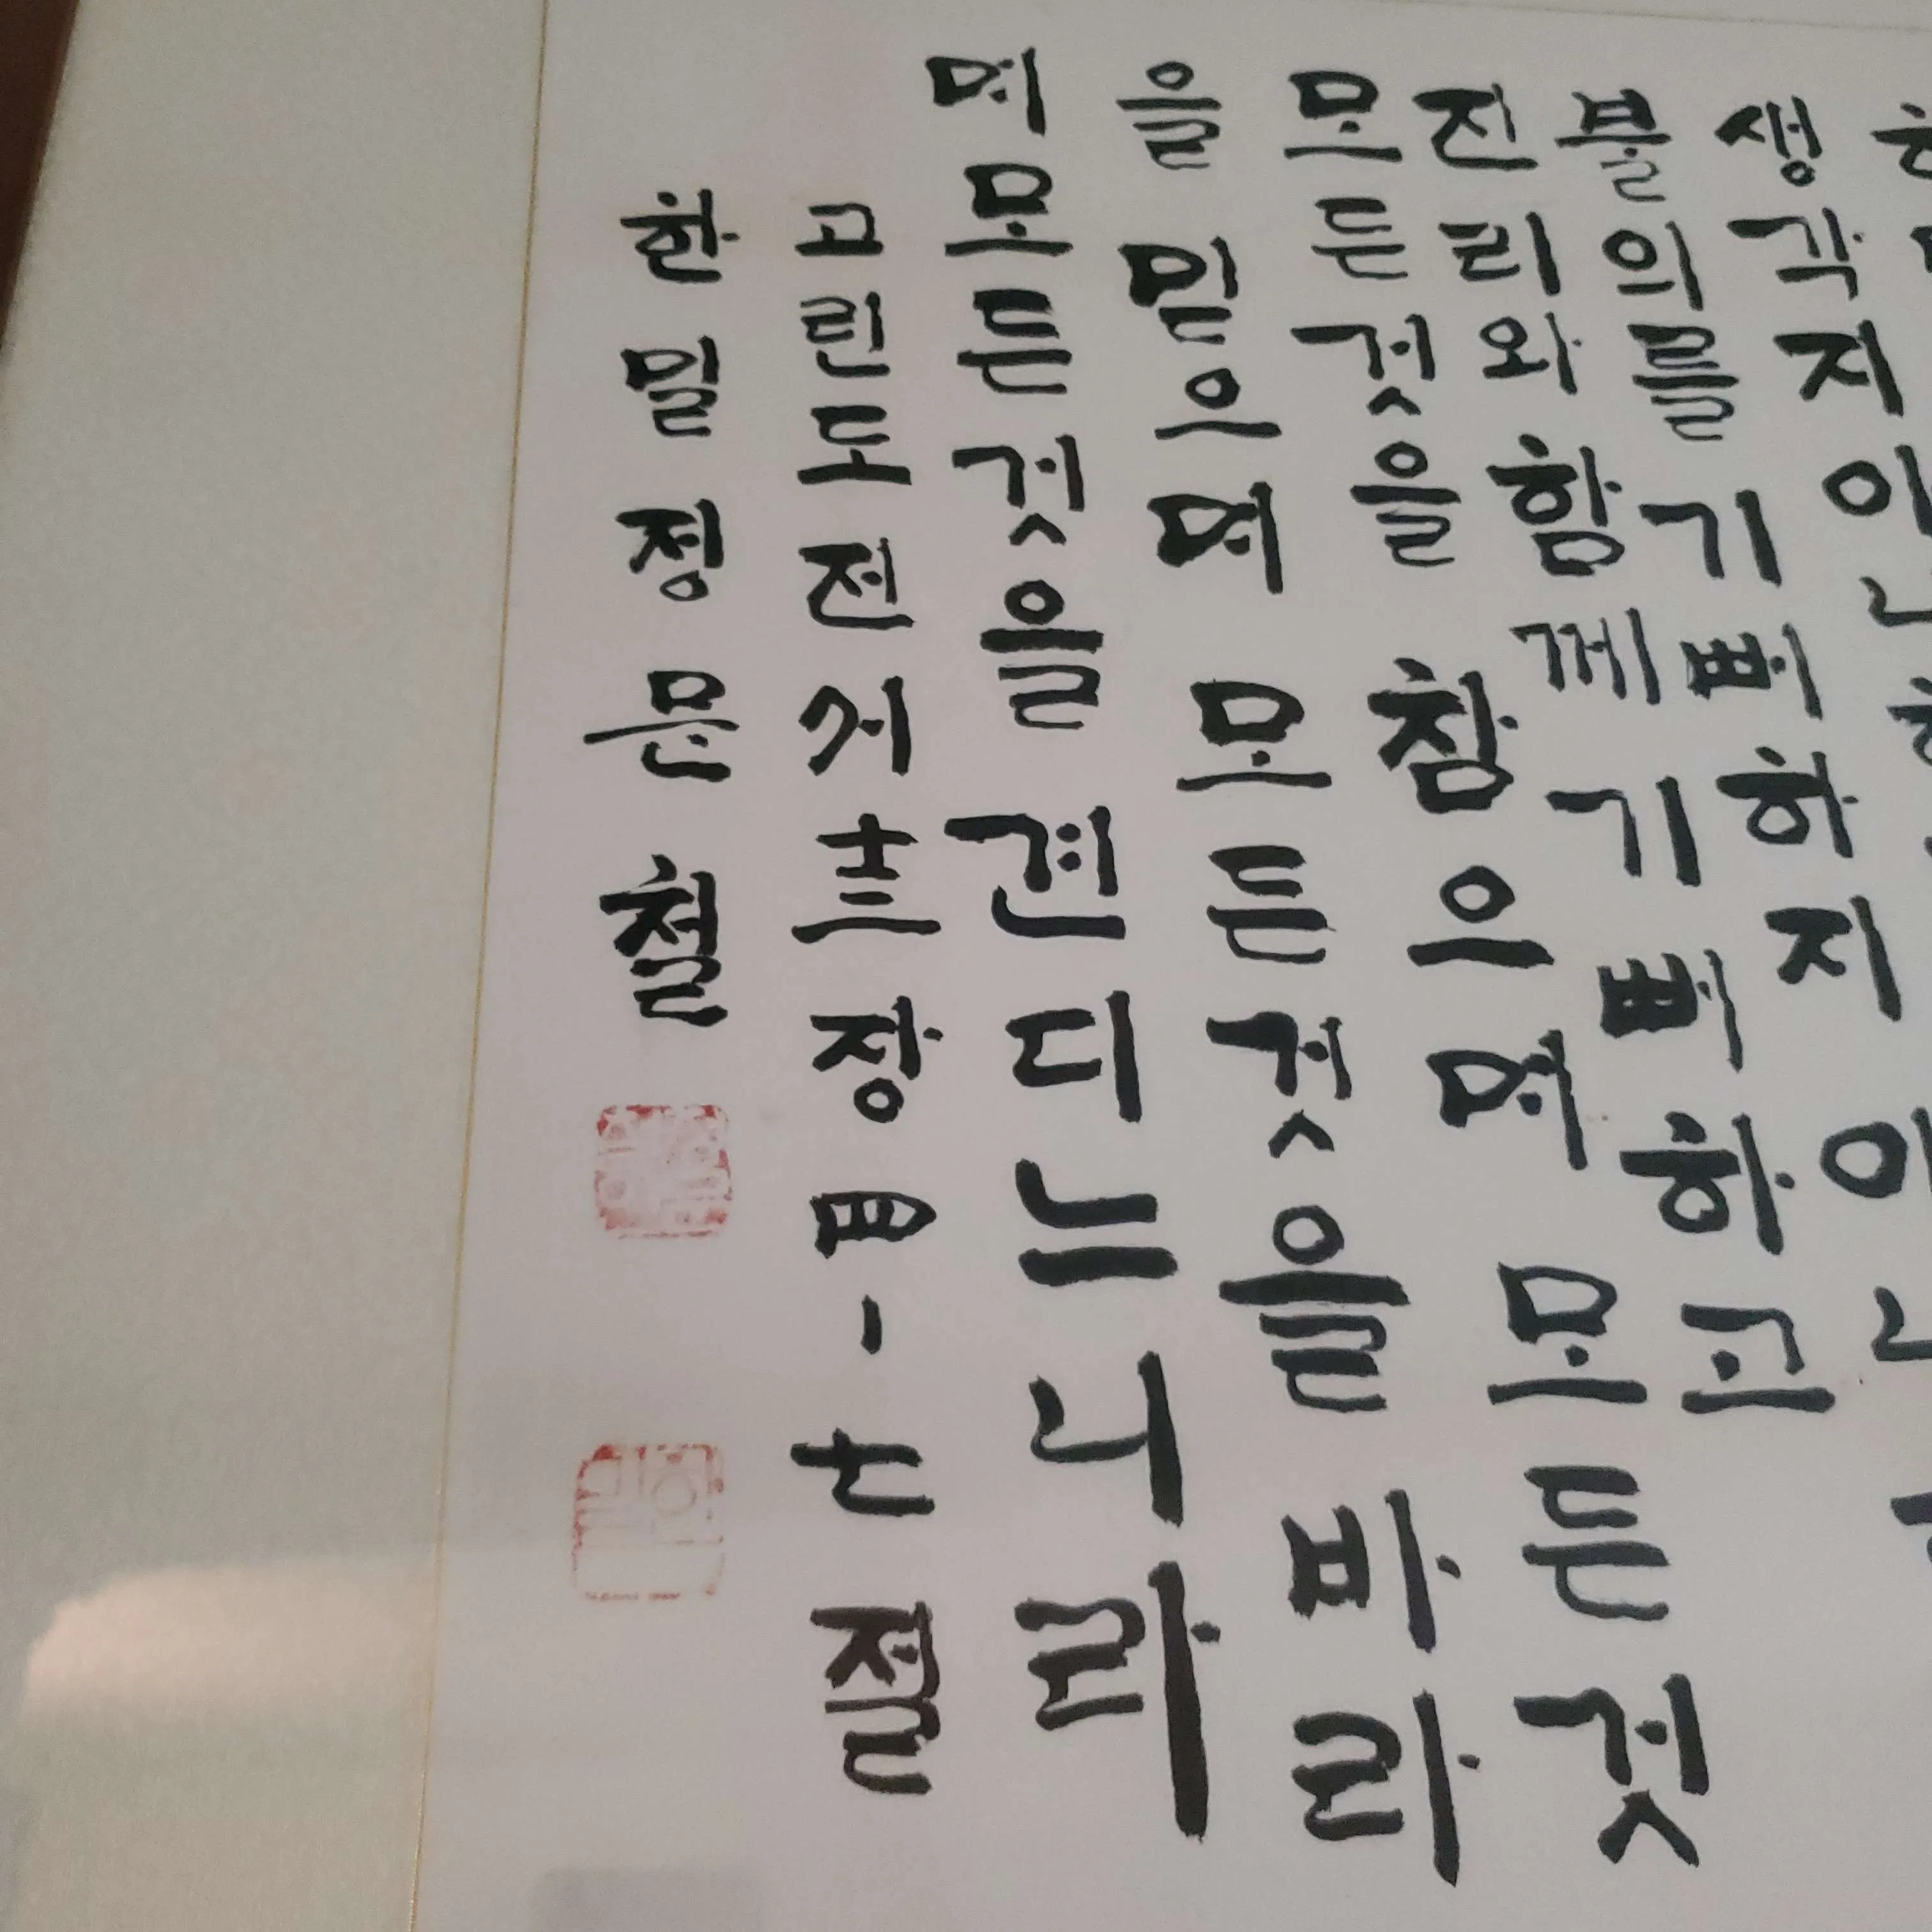 생각지
불의를기뻐하지아니
진리와함께기뻐하고
모든것을참으며모든것
을믿으며모든것을바라
며모든것을견디느니라
고린도전서十三장四-七절
한밀정문철